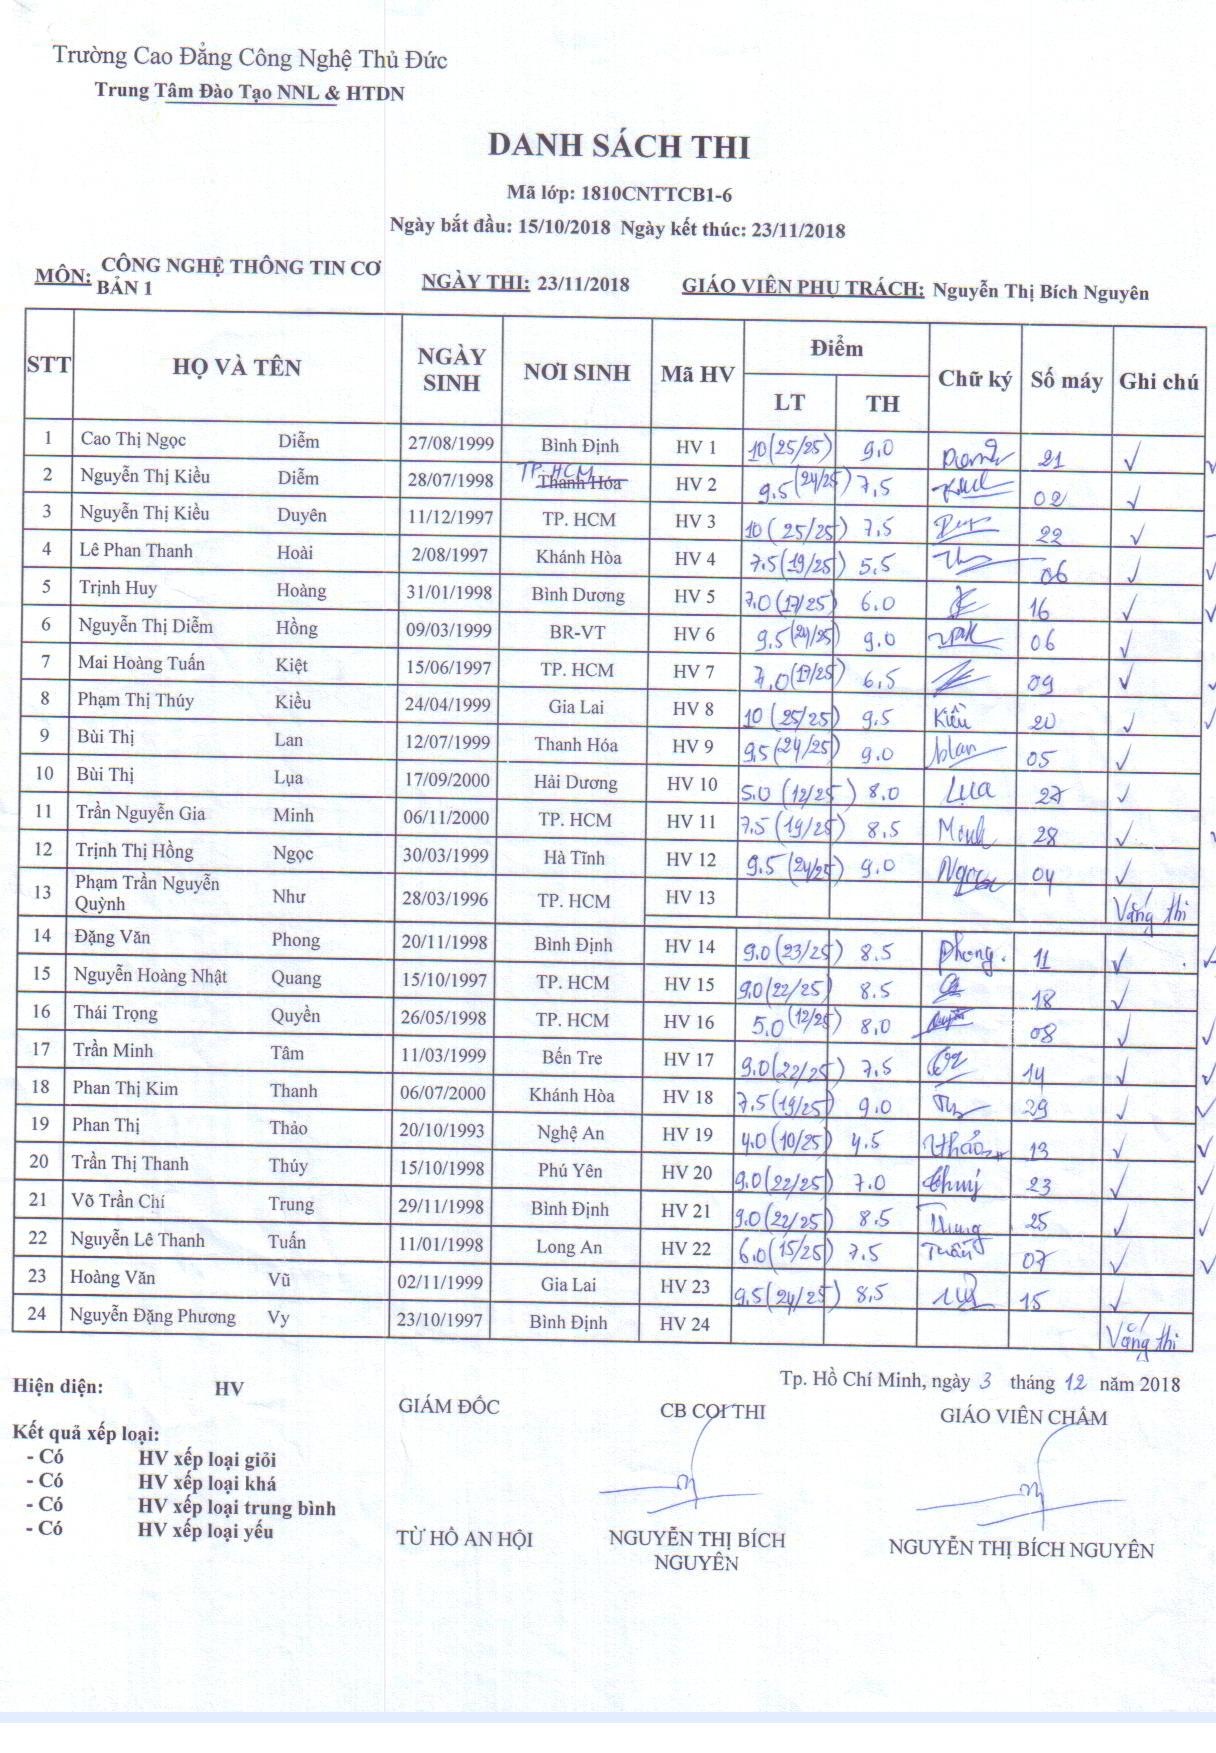 Trường Cao Đẳng Công Nghệ Thủ Đức
Trung Tâm Đào Tạo NNL & HTDN
DANH SÁCH THI
Mã lớp: 1810CNTTCB1-6
Ngày bắt đầu: 15/10/2018 Ngày kết thúc: 23/11/2018
MÔN: CÔNG NGHỆ THÔNG TIN CƠ BẢN 1 NGÀY THI: 23/11/2018 GIÁO VIÊN PHỤ TRÁCH: Nguyễn Thị Bích Nguyên
STT HỌ VÀ TÊN NGÀY SINH NƠI SINH Mã HV Điểm LT TH Chữ ký Số máy Ghi chú
1 Cao Thị Ngọc Diễm 27/08/1999 Bình Định HV 1 10 (25/25) 9.0 21 ✓
2 Nguyễn Thị Kiều Diễm 28/07/1998 TP. HCM Thanh Hóa HV 2 9.5 (24/25) 7.5 02 ✓
3 Nguyễn Thị Kiều Duyên 11/12/1997 TP. HCM HV 3 10 (25/25) 7.5 22 ✓
4 Lê Phan Thanh Hoài 2/08/1997 Khánh Hòa HV 4 7.5 (19/25) 5.5 06 ✓
5 Trịnh Huy Hoàng 31/01/1998 Bình Dương HV 5 7.0 (17/25) 6.0 16 ✓
6 Nguyễn Thị Diễm Hồng 09/03/1999 BR-VT HV 6 9.5 (24/25) 9.0 06 ✓
7 Mai Hoàng Tuấn Kiệt 15/06/1997 TP. HCM HV 7 7.0 (17/25) 6.5 09 ✓
8 Phạm Thị Thúy Kiều 24/04/1999 Gia Lai HV 8 10 (25/25) 9.5 Kiều 20 ✓
9 Bùi Thị Lan 12/07/1999 Thanh Hóa HV 9 9.5 (24/25) 9.0 Lan 05 ✓
10 Bùi Thị Lụa 17/09/2000 Hải Dương HV 10 5.0 (12/25) 8.0 Lụa 27 ✓
11 Trần Nguyễn Gia Minh 06/11/2000 TP. HCM HV 11 7.5 (19/25) 8.5 Minh 28 ✓
12 Trịnh Thị Hồng Ngọc 30/03/1999 Hà Tĩnh HV 12 9.5 (24/25) 9.0 Ngọc 04 ✓
13 Phạm Trần Nguyễn Quỳnh Như 28/03/1996 TP. HCM HV 13 Vắng thi
14 Đặng Văn Phong 20/11/1998 Bình Định HV 14 9.0 (23/25) 8.5 Phong. 11 ✓
15 Nguyễn Hoàng Nhật Quang 15/10/1997 TP. HCM HV 15 9.0 (22/25) 8.5 18 ✓
16 Thái Trọng Quyền 26/05/1998 TP. HCM HV 16 5.0 (12/25) 8.0 08 ✓
17 Trần Minh Tâm 11/03/1999 Bến Tre HV 17 9.0 (22/25) 7.5 14 ✓
18 Phan Thị Kim Thanh 06/07/2000 Khánh Hòa HV 18 7.5 (19/25) 9.0 29 ✓
19 Phan Thị Thảo 20/10/1993 Nghệ An HV 19 4.0 (10/25) 4.5 Thảo 13 ✓
20 Trần Thị Thanh Thúy 15/10/1998 Phú Yên HV 20 9.0 (22/25) 7.0 Thuý 23 ✓
21 Võ Trần Chí Trung 29/11/1998 Bình Định HV 21 9.0 (22/25) 8.5 Trung 25 ✓
22 Nguyễn Lê Thanh Tuấn 11/01/1998 Long An HV 22 6.0 (15/25) 7.5 Tuấn 07 ✓
23 Hoàng Văn Vũ 02/11/1999 Gia Lai HV 23 9.5 (24/25) 8.5 15 ✓
24 Nguyễn Đặng Phương Vy 23/10/1997 Bình Định HV 24 Vắng thi
Tp. Hồ Chí Minh, ngày 3 tháng 12 năm 2018
Hiện diện: HV
GIÁM ĐỐC CB COI THI GIÁO VIÊN CHẤM
Kết quả xếp loại:
- Có HV xếp loại giỏi
- Có HV xếp loại khá
- Có HV xếp loại trung bình
- Có HV xếp loại yếu
TỪ HỒ AN HỘI NGUYỄN THỊ BÍCH NGUYÊN NGUYỄN THỊ BÍCH NGUYÊN